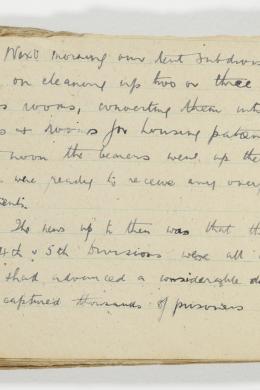 Next morning our tent subdivis
on cleaning up two or three
s rooms, converting them into
s & rooms for housing patien
noon the bearers went up the
were ready to receive any over
ients.
The news up to then was that th
4th & 5th Divisions were all
& had advanced a considerable d
captured thousands of prisoners